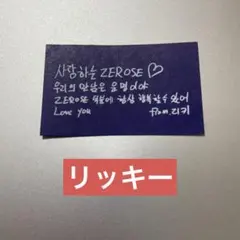 사랑하는 ZEROSE ♡
우리의 만남은 운명이야
ZEROSE 덕분에 항상 행복할 수 있어
Love you from.리키
リッキー